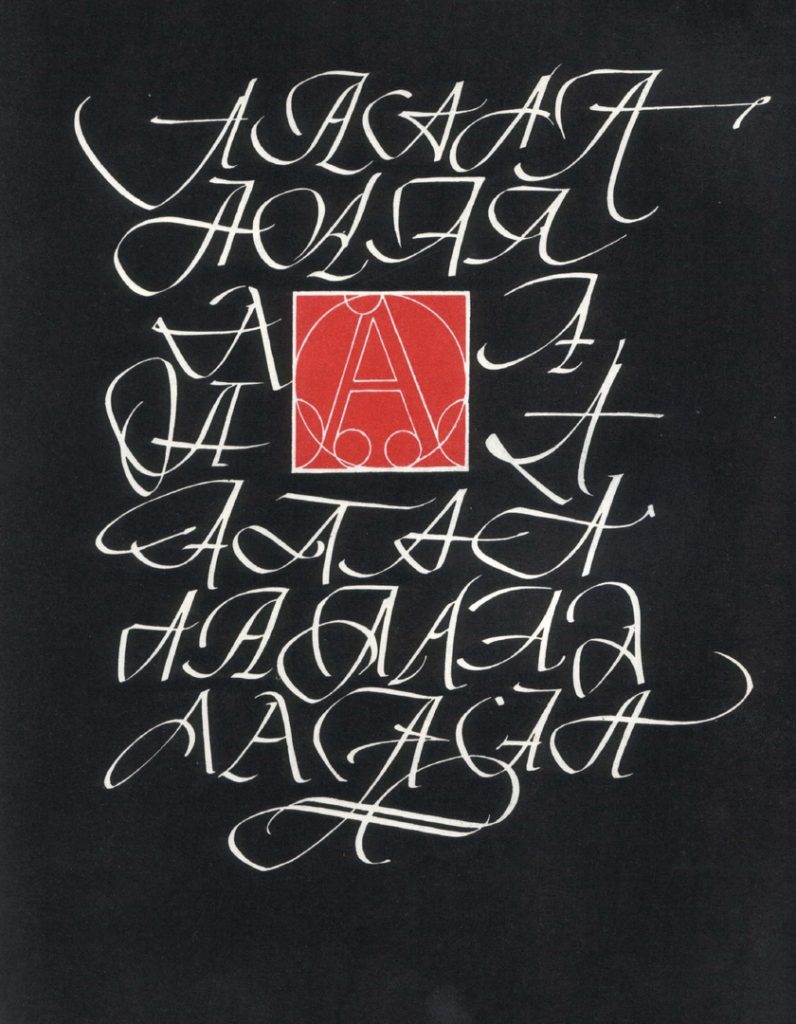 A A A A A
A A A A
A A A
A A
A A A A
A A A A A A
A A A A A
A